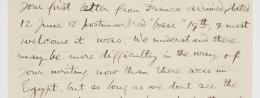 Your first letter from France arrived, dated
12 June & postmarked "base" 19th, & most
welcome it was. We understand there
may be more difficulty in the way of
your writing now than there was in
Egypt, but so long as we dont see the